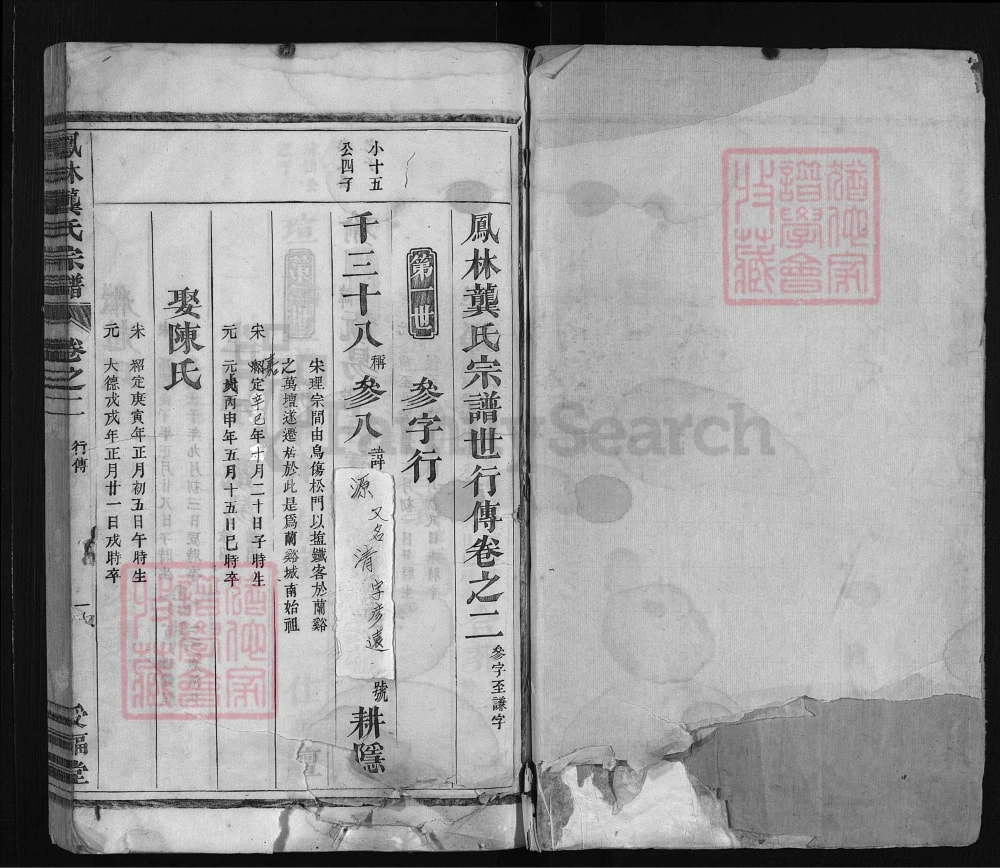 鳳林龔氏宗譜世行傳卷之二 參字至謙字
第一世
參字行
小十五
公四子
千三十八 稱 參八 諱 源 又名 清 字彥遠 號 耕隱
宋理宗間由烏傷松門以塩鐵客於蘭谿
之萬壇遂遷居於此是爲蘭谿城南始祖
宋 紹定辛巳年十月二十日子時生
嘉
元 元貞丙申年五月十五日巳時卒
娶陳氏
宋 紹定庚寅年正月初五日午時生
元 大德戊戌年正月廿一日戌時卒
鳳林龔氏宗譜
卷之二
行傳
一
福堂
FamilySearch
譜學會
收藏
譜學會
收藏